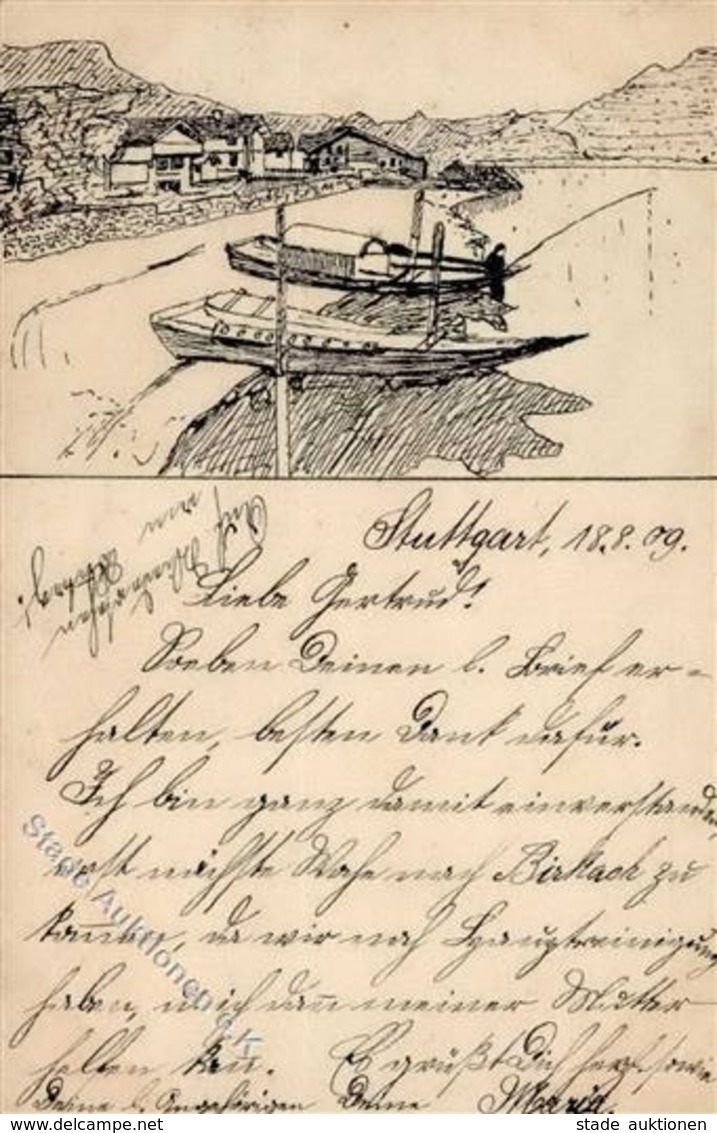 Stuttgart, 18.8.09.
Liebe Gertrud!
Soeben Deinen l. Brief er-
halten, besten Dank dafür.
Ich bin ganz damit einverstanden,
erst nächste Woche nach Birkach zu
kommen, da wir noch Hauptreinigung
haben, u. ich dann meiner Mutter
helfen kann. Es grüßt Dich herzl. sowie
Deine l. Angehörigen Deine Maria.
Auf Wiedersehen
Stade Auktionen e.K.
stade auktionen